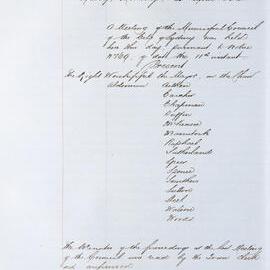 A Meeting of the Municipal Council
of the City of Sydney was held
here this day pursuant to Notice
of date the 11th instant
Present
The Right Worshipful the Mayor, in the Chair
Aldermen
Caraher
Chapman
Raphael
Sutherland
Speer
Smithers
Sutton
Steel
Watson
Woods
The Minutes of the proceedings at the last Meeting
of the Council were read by the Town Clerk
and confirmed